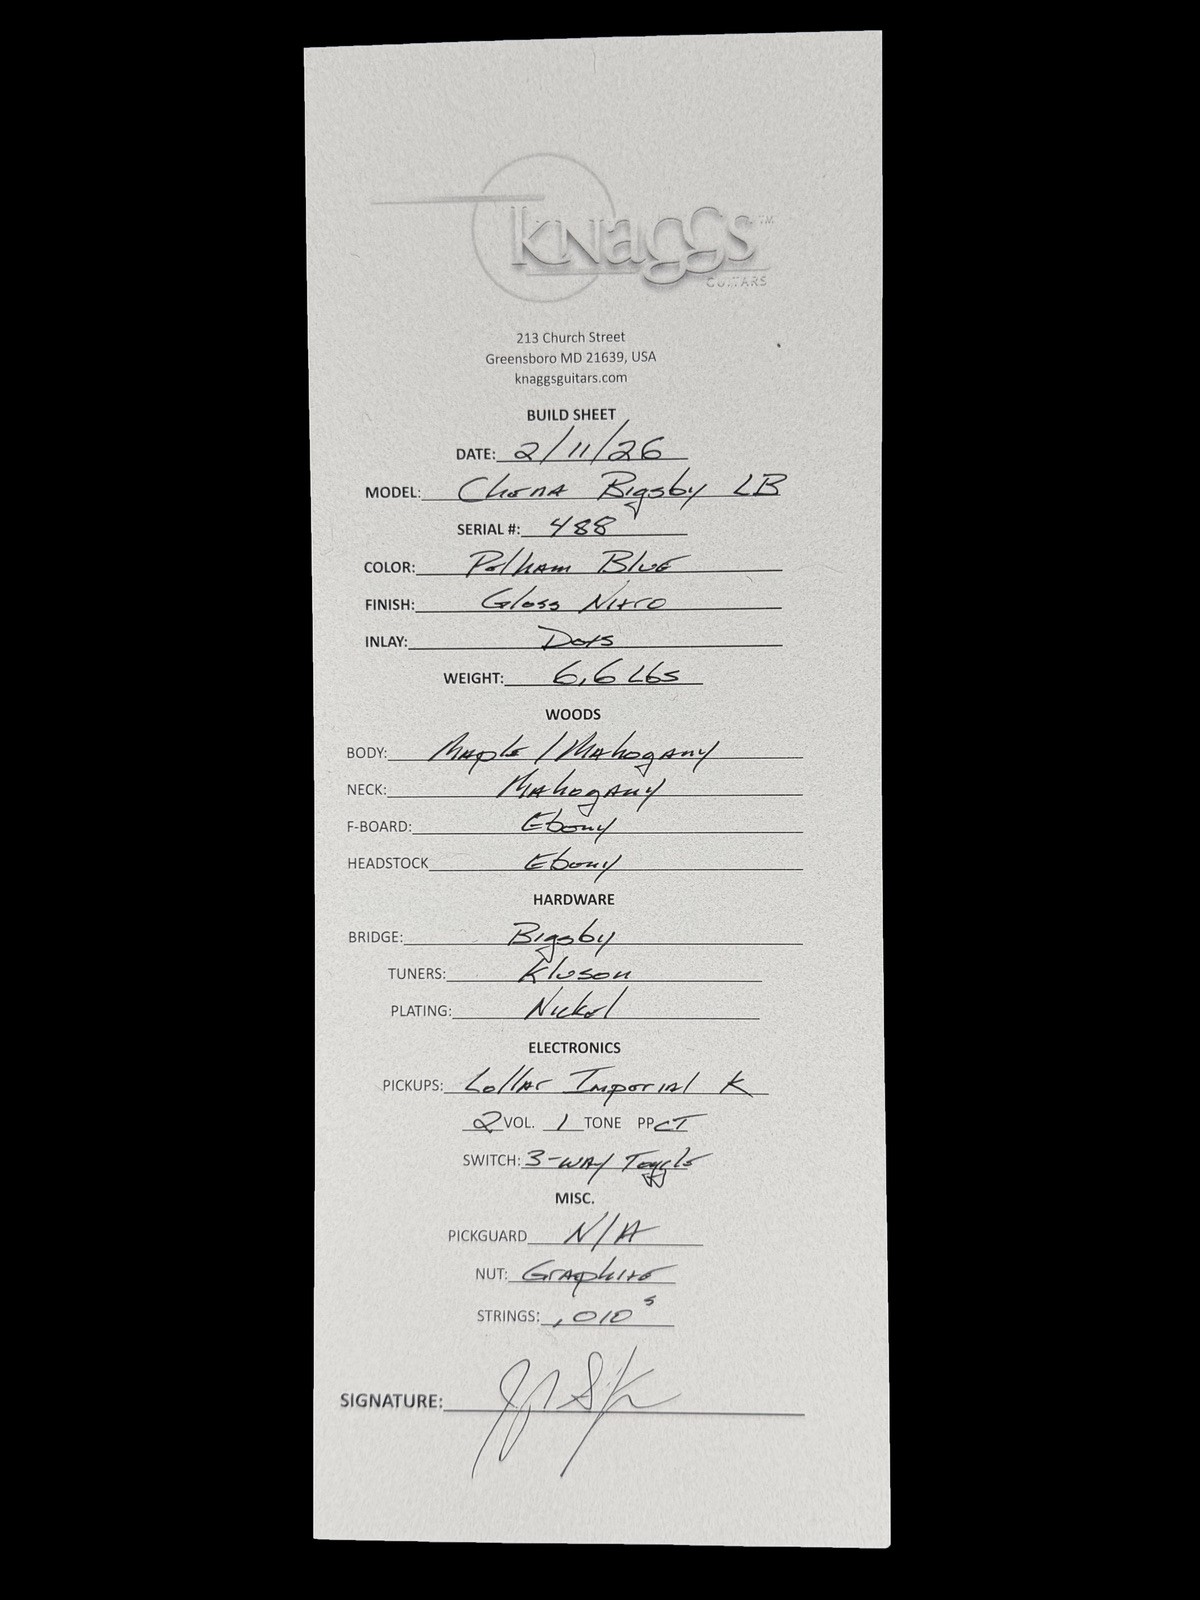 Knaggs™
GUITARS
213 Church Street
Greensboro MD 21639, USA
knaggsguitars.com
BUILD SHEET
DATE: 2/11/26
MODEL: Chena Bigsby LB
SERIAL #: 488
COLOR: Pelham Blue
FINISH: Gloss Nitro
INLAY: Dots
WEIGHT: 6.6 Lbs
WOODS
BODY: Maple / Mahogany
NECK: Mahogany
F-BOARD: Ebony
HEADSTOCK Ebony
HARDWARE
BRIDGE: Bigsby
TUNERS: Kluson
PLATING: Nickel
ELECTRONICS
PICKUPS: Lollar Imperial K
2 VOL. 1 TONE PP CT
SWITCH: 3-WAY Toggle
MISC.
PICKGUARD N/A
NUT: Graphite
STRINGS: .010s
SIGNATURE: